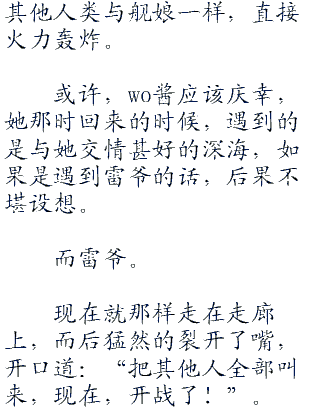 其他人类与舰娘一样，直接
火力轰炸。
或许，wo酱应该庆幸，
她那时回来的时候，遇到的
是与她交情甚好的深海，如
果是遇到雷爷的话，后果不
堪设想。
而雷爷。
现在就那样走在走廊
上，而后猛然的裂开了嘴，
开口道：“把其他人全部叫
来，现在，开战了！”。